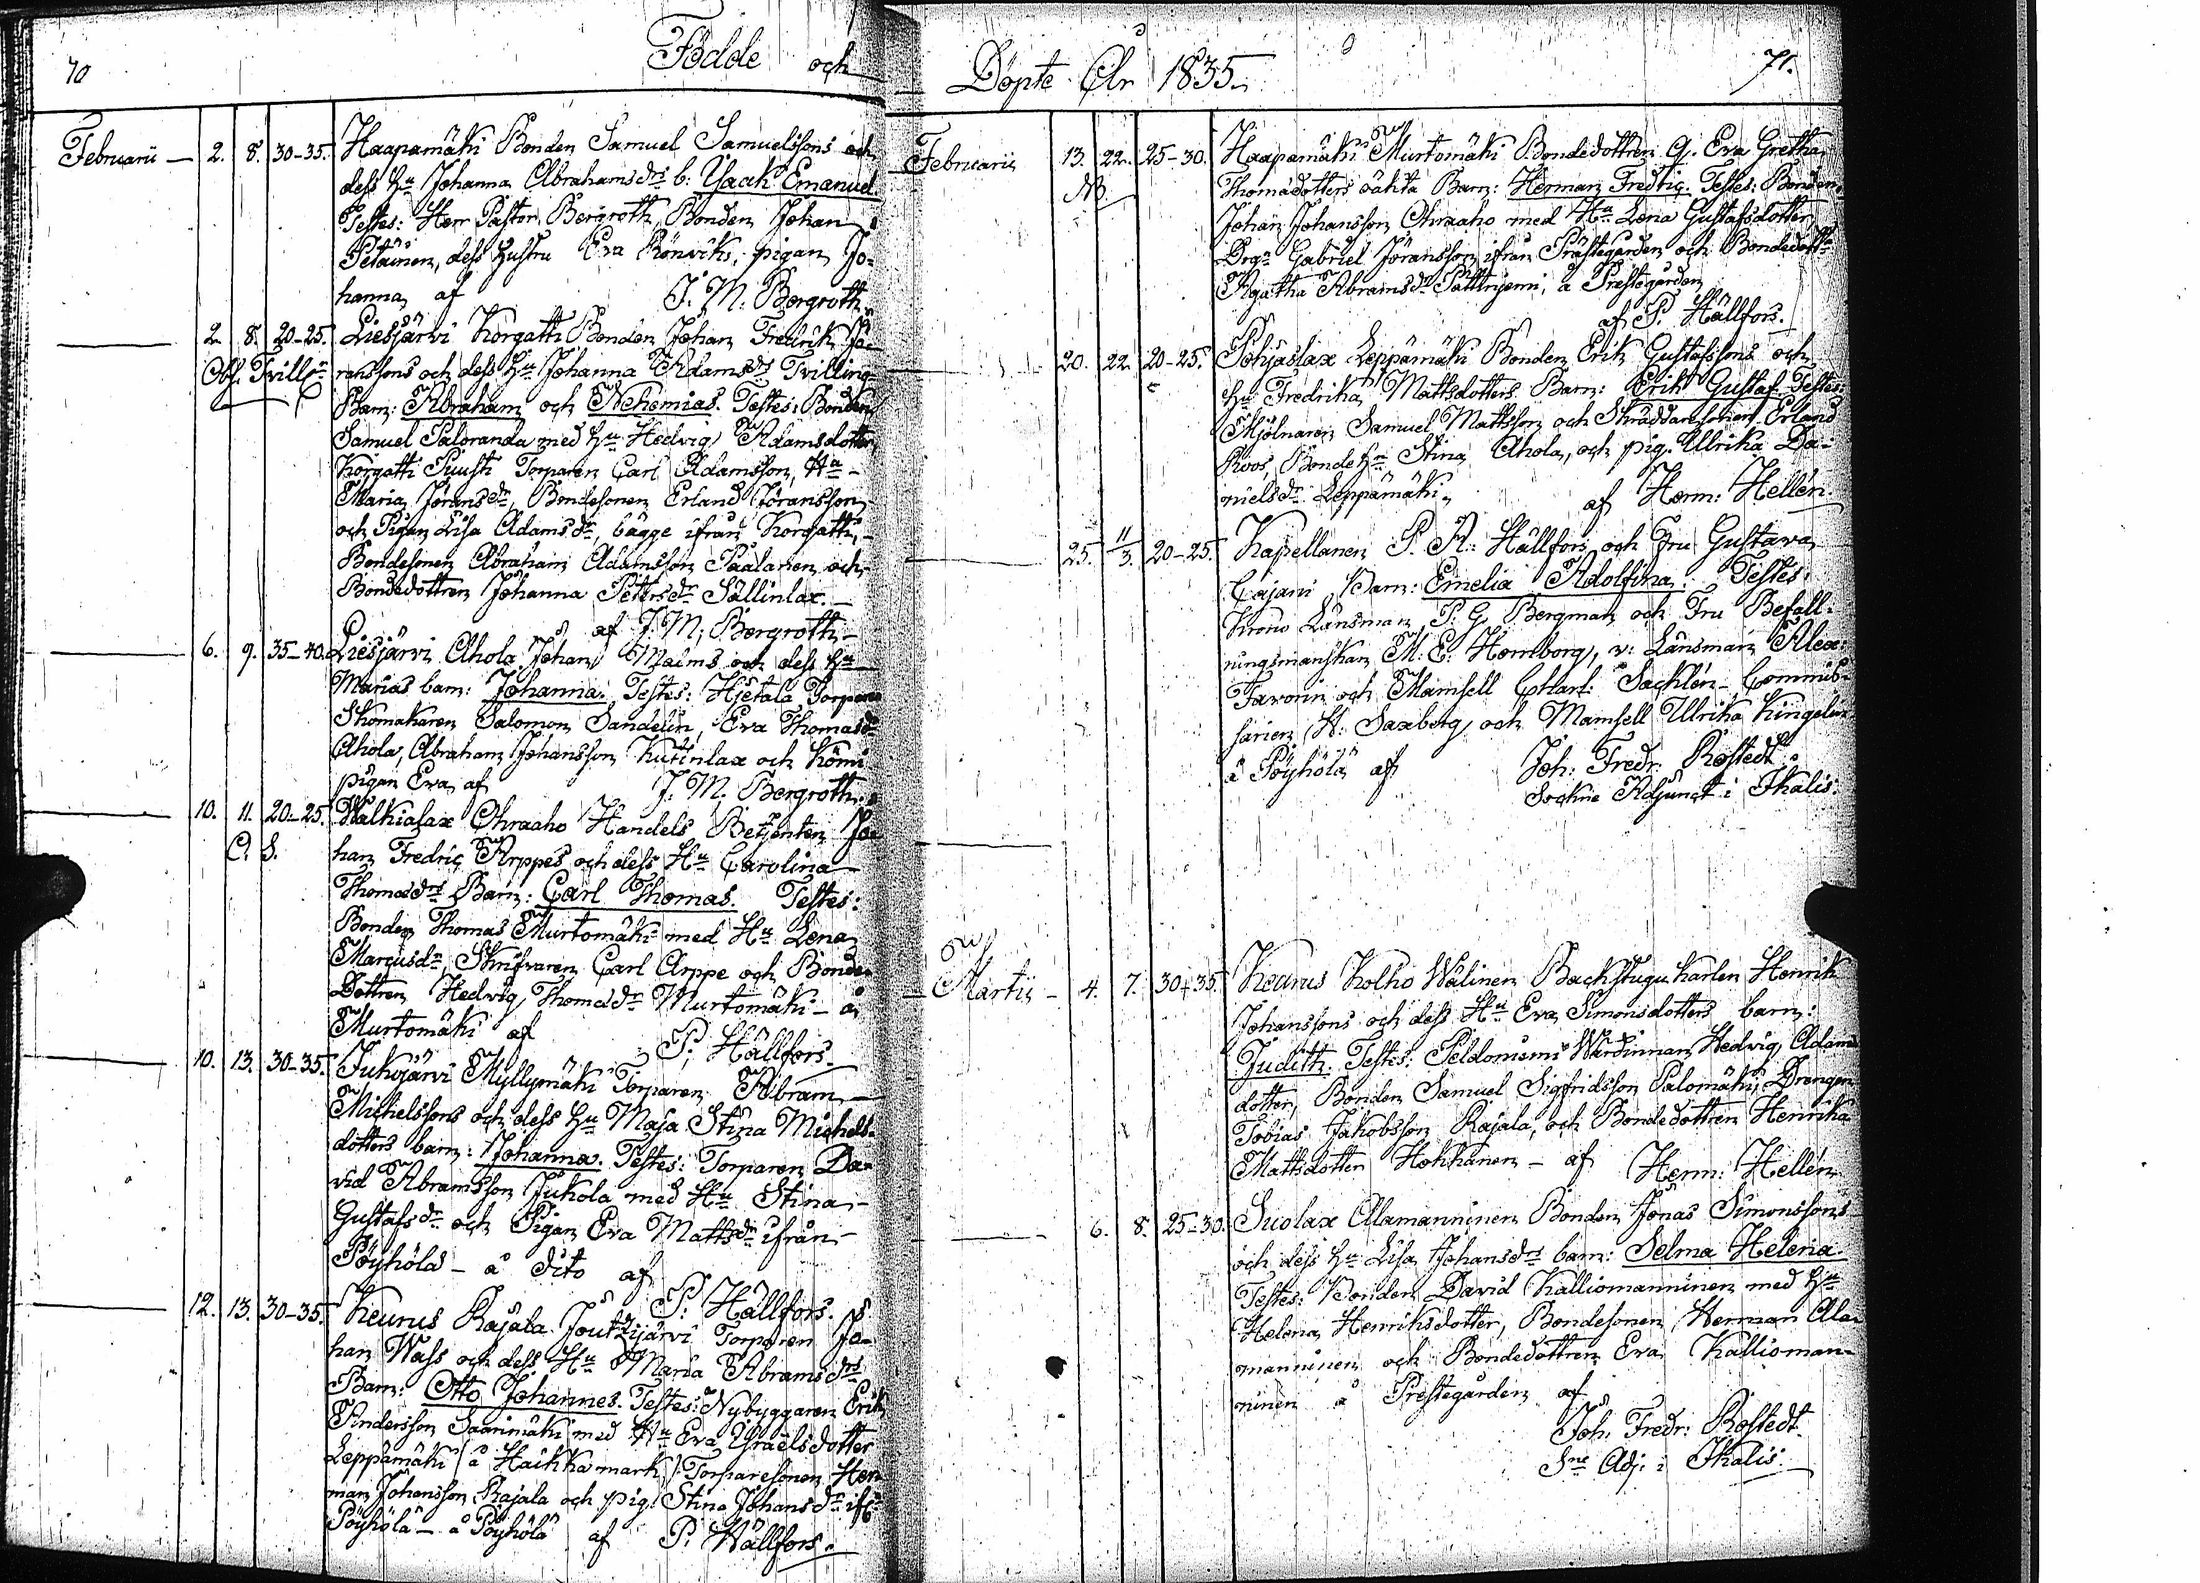 70 Födde och
Februarii — 2. 8. 30-35. Haapamäki Bonden Samuel Samuelssons och
dess Hu Johanna Abrahamsdrs b: Isack Emanuel
Testes: Herr Pastor Bergroth, Bonden Johan
Petäinen, dess hustru Eva Rönviks, pigan Jo-
hanna af J. M. Bergroth.
2. 8. 20-25. Liesjärvi Korgatti Bonden Johan Fredrik Jö-
Obs. Trill. ranssons och dess Hu Johanna Adamsdrs Trilling
Barn: Abraham och Nehemias. Testes: Bonden
Samuel Paloranda med Hu Hedvig Adamsdotter
Korgatti Puusti Torparen Carl Adamsson, Hu
Maria Jöransdr, Bondesonen Erland Jöransson
och Pigan Lisa Adamsdr, bägge ifrån Korgatti,
Bondesonen Abraham Adamsson Paalanen och
Bondedottren Johanna Petersdr Sällinlax.
af J. M. Bergroth
6. 9. 35-40. Liesjärvi Ahola Johan Malms och dess Hu
Marias barn: Johanna. Testes: Hjetala Torparen
Skomakaren Salomon Sandelin, Eva Thomasdr
Ahola, Abraham Johansson Kutinlax och Kömi
pigan Eva af J. M. Bergroth.
10. 11. 20-25. Walkialax Ohraaho Handels Betjenten Jo-
C. S. han Fredric Arppes och dess Hu Carolina
Thomasdrs Barn: Carl Thomas. Testes:
Bonden Thomas Murtomäki med Hu Lena
Marcusdr, Skrifvaren Carl Arppe och Bonde
Dottren Hedvig Thomasdr Murtomäki — å
Murtomäki af P. Hällfors.
10. 13. 30-35. Jukojärvi Myllymäki Torparen Abram
Michelssons och dess Hu Maja Stina Michels-
dotters barn: Johanna. Testes: Torparen Da-
vid Abramsson Jukola med Hu Stina
Gustafsdr och Pigan Eva Mattsdr ifrån
Pöyhölä — å dito af
P. Hällfors.
12. 13. 30-35. Keurus Rajala Joutzijärvi Torparen Jo-
han Wass och dess Hu Maria Abramsdrs
Barn: Otto Johannes. Testes: Nybyggaren Erik
Andersson Saarimäki med Hu Eva Israelsdotter
Leppämäki /å Haikka mark/. Torparesonen Her
man Johansson Rajala och pig. Stina Johansdr ifr
Pöyhölä — å Pöyhölä af P. Hällfors.
Döpte År 1835. 71.
Februarii 13. 22. 25-30. Haapamäki Murtomäki Bondedottren q. Eva Gretha
NB. Thomadotters oäkta Barn: Herman Fredric. Testes: Bonden
Johan Johansson Ohraaho med Hu Lena Gustafsdotter
Drgn Gabriel Jöransson ifrån Prästegården och Bondedottr
Agatha Abramsdr, å Prestegården
af P. Hällfors.
20. 22. 20-25. Pohjaslax Leppämäki Bonden Erik Gustafssons och
Hu Fredrika Mattsdotters Barn: Erik Gustaf. Testes
Mjölnaren Samuel Mattsson och Skräddaresonen Erland
Roos, Bonde Hu Stina Ahola, och pig. Ullrika Da-
nielsdr Leppämäki af Herm: Hellén.
25. 11/3. 20-25. Kapellanen P. A. Hällfors och Fru Gustava
Cajani, Barn: Emelia Adolfina. Testes:
Krono Länsman P. G. Bergman och Fru Befall-
ningsmanskan M. E. Homborg, v: Länsman Alex:
Favorin och Mamsell Charl: Sacklén, Commis-
sarien H. Saxberg och Mamsell Ulrika Kingelin
å Pöyhölä af Joh. Fredr. Rostedt
Sockne Adjunct i Ikalis.
Martii — 4. 7. 30-35. Keurus Kolho Wälinen Backstugukarlen Henrik
Johanssons och dess Hu Eva Simonsdotters barn:
Judith. Testes: Peldomemi Wärdinnan Hedvig Adams
dotter, Bonden Samuel Sigfridsson Palomäki, Drengen
Tobias Jakobsson Rajala, och Bondedottren Henrika
Mattsdotter Hokkanen — af Herm: Hellén
6. 8. 25-30. Suolax Alamanninen Bonden Jonas Simonssons
och dess Hu Lisa Johansdrs barn: Selma Helena.
Testes: Bonden David Kalliomanninen med Hu
Helena Henriksdotter, Bondesonen Herman Ala-
manninen och Bondedottren Eva Kallioman-
ninen å Prestegården af
Joh. Fredr: Rostedt.
Sne Adj. i Ikalis.